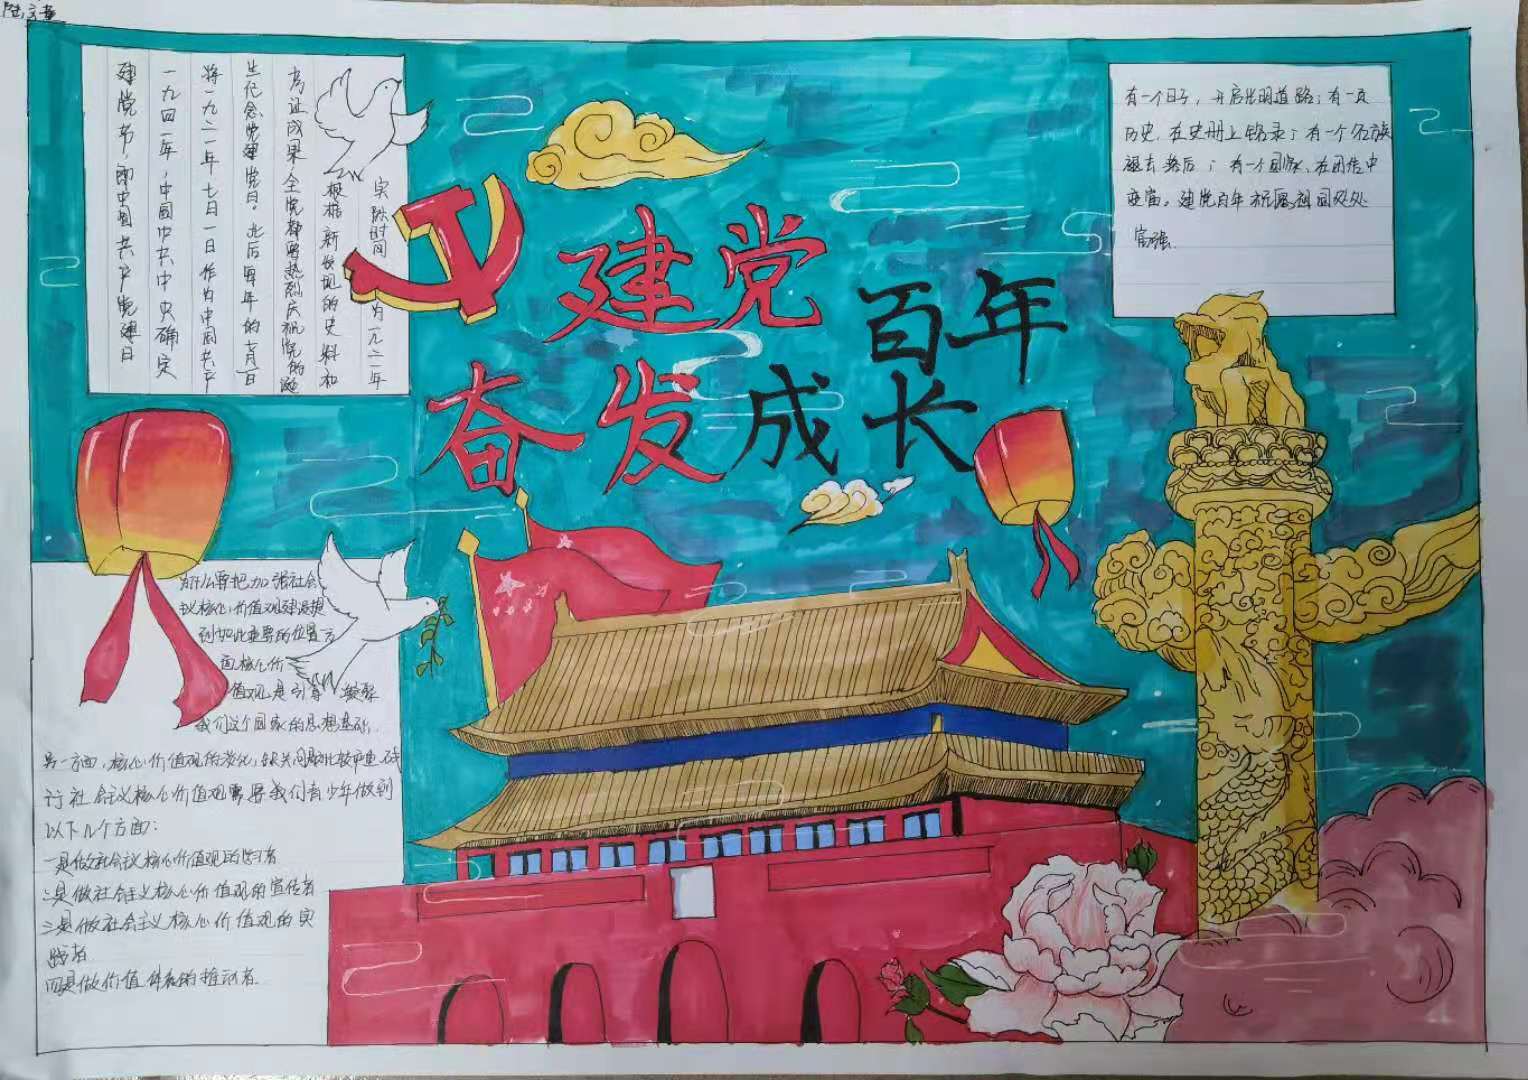 建党百年
奋发成长
建党节,即中国共产党建日
一九四一年,中国中共中央确定
将一九二一年七月一日作为中国共产
生纪念党建党日。此后每年的七月一日
考证成果,全党都要热烈庆祝党的诞
根据新发现的史料和
实际时间 为一九二一年
有一个日子,开启光明道路;有一页
历史,在史册上铭录;有一个名族
褪去落后;有一个国家,在
变富。建党百年祝愿祖国处处
富强
为什么要把加强社会
义核心价值观建设提
到如此重要的位置方
面核心价
值观是引导 凝聚
我们这个国家的思想基础.
另一方面,核心价值观的淡化,缺失问题比较严重 践
行社会主义核心价值观需要我们青少年做到
以下几个方面:
一是做社会主义核心价值观的学习者
二是做社会主义核心价值观的宣传者
三是做社会主义核心价值观的实
践者
四是做价值体系的推动者.